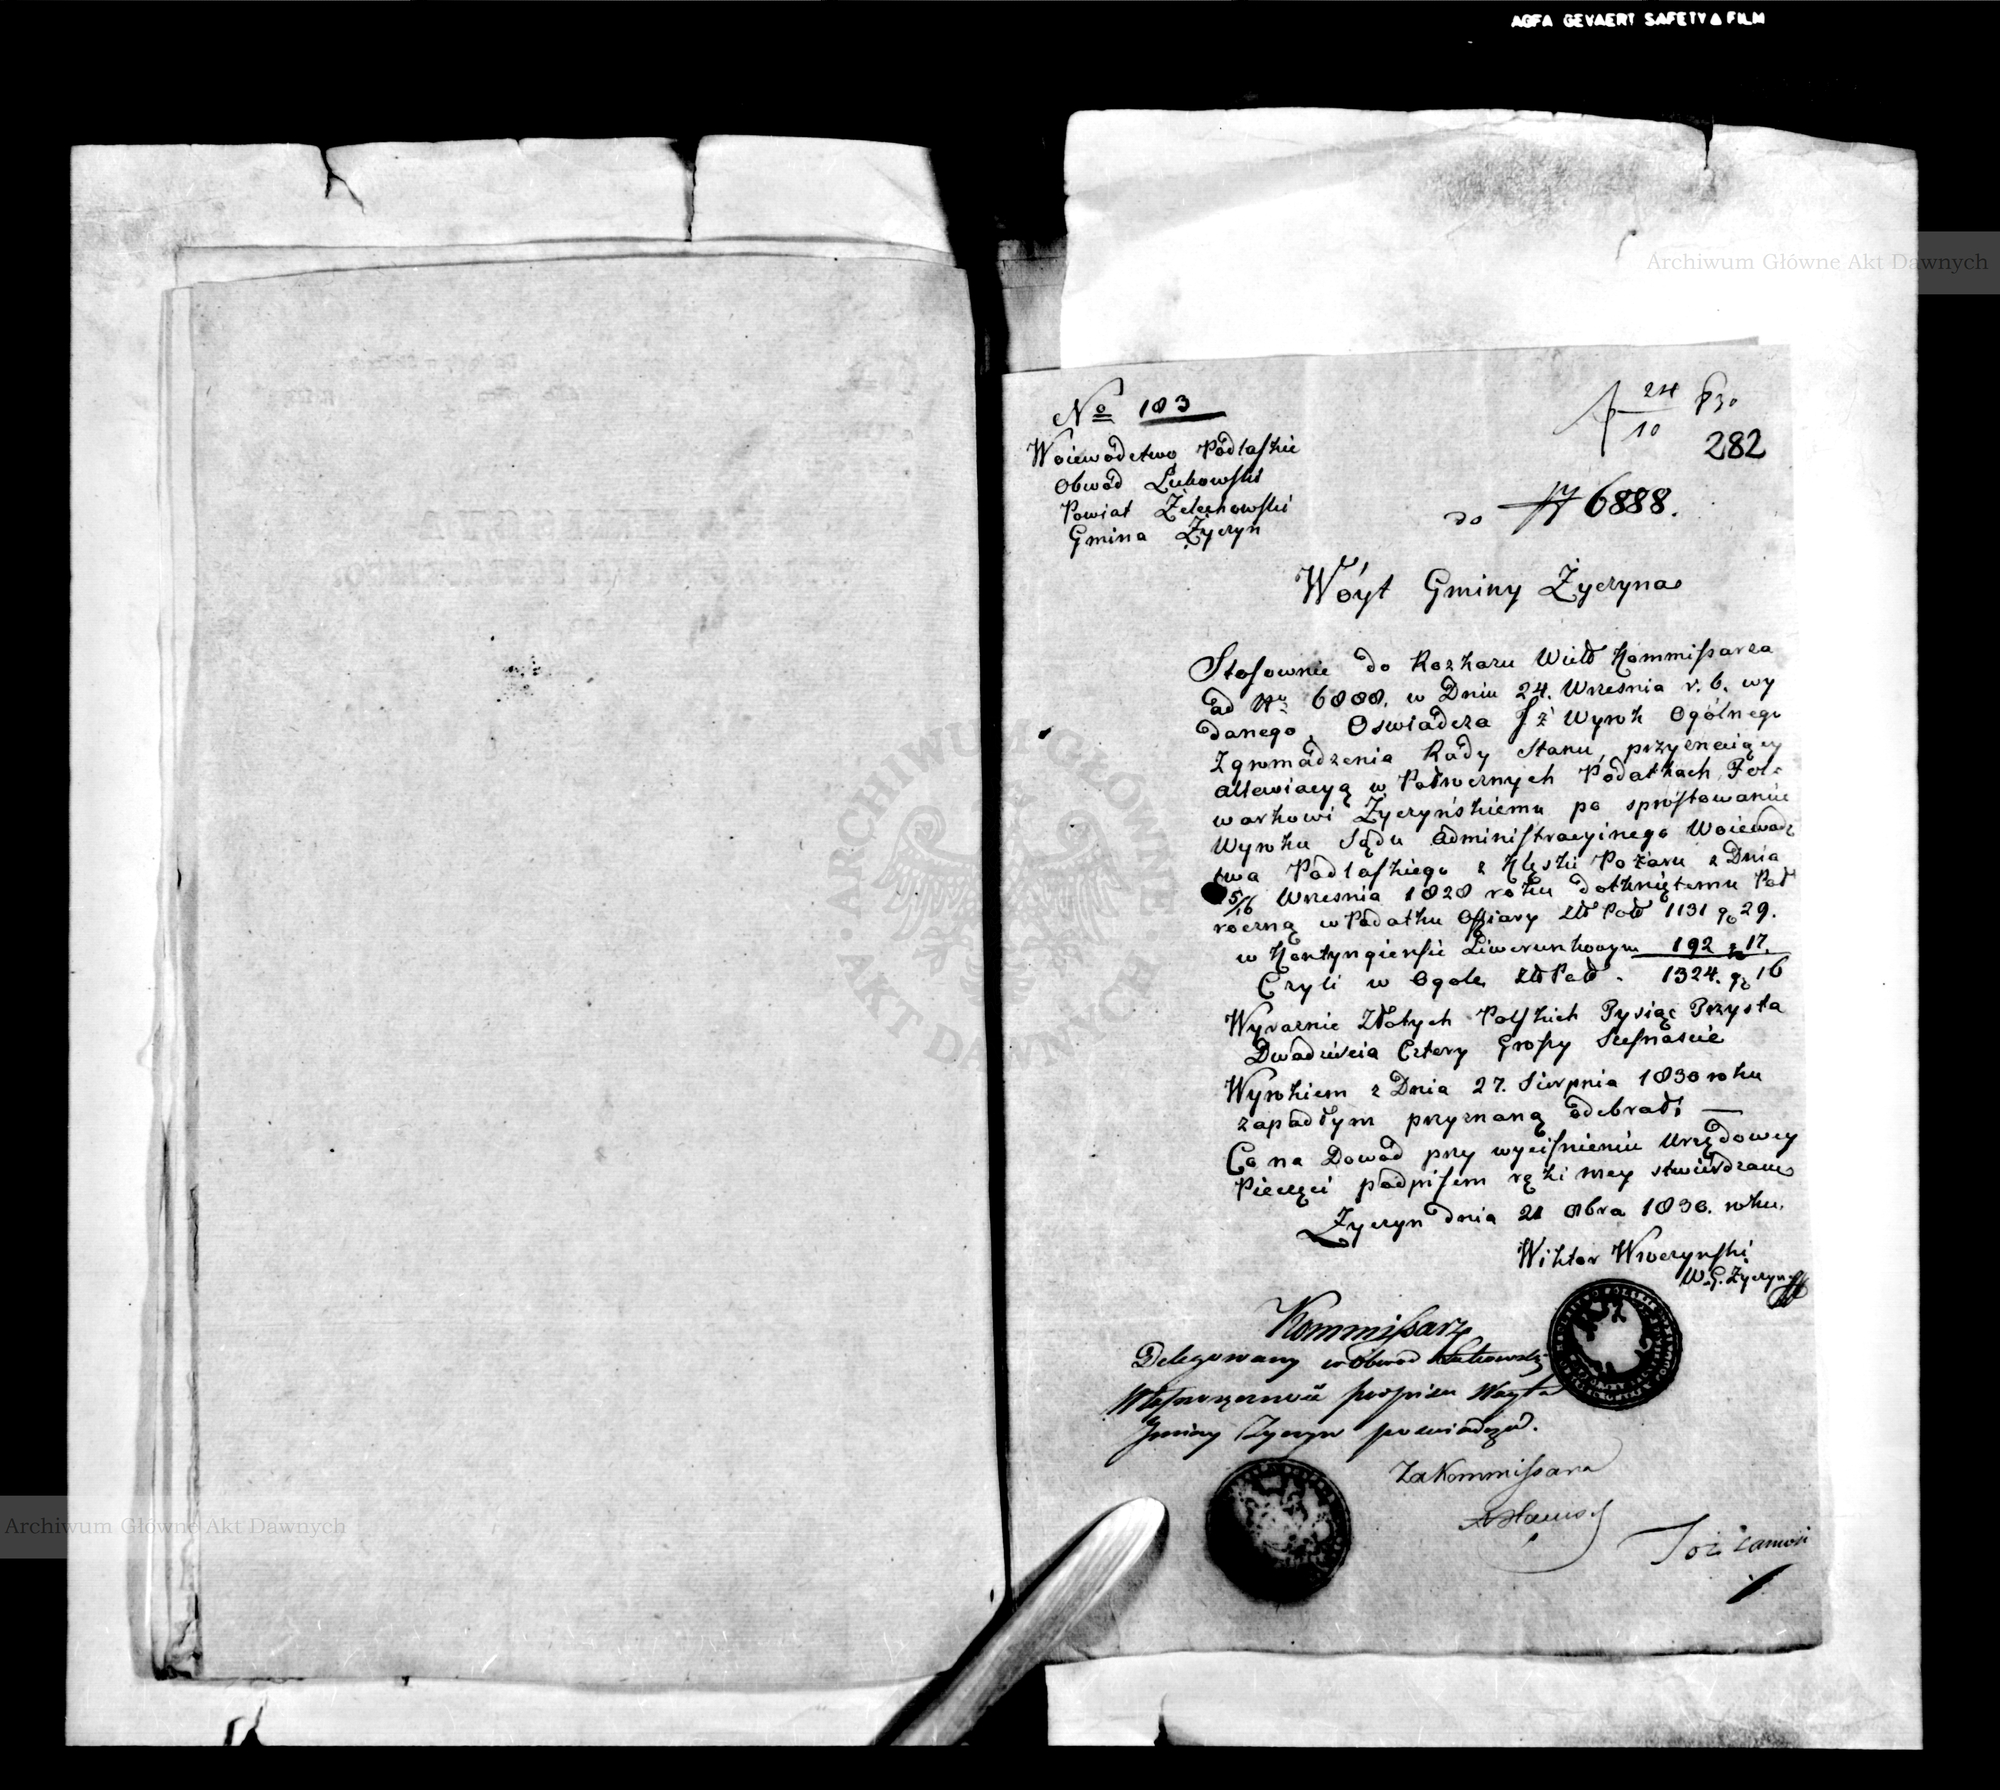 AGFA GEVAERT SAFETY FILM
No 183
Woiewodztwo Podlaskie
Obwod Łukowski
Powiat Żelechowski
Gmina Życzyn
24/10 830
282
do N 6888.
Wóyt Gminy Życzyna
Stosownie do Rozkazu Wielo Kommissarza
ad Nr 6888. w Dniu 24. Wrzesnia r. b. wy
danego, Oswiadcza Iż Wyrok Ogólnego
Zgromadzenia Rady Stanu, przyznaiący
allewiacyą w Połrocznych Podatkach Fol-
warkowi Życzyńskiemu po sprostowaniu
Wyroku Sądu Administracyinego Woiewodz
twa Podlaskiego z Klęski Pożaru z Dnia
15/16 Wrzesnia 1828 roku dotkniętemu Poł
roczną w Podatku Ofiary Zło Pol 1131 gr 29.
w Kontyngiensie Liwerunkowym 192 " 17.
Czyli w Ogole Zło Pol. 1324. gr 16
Wyraznie Złotych Polskich Tysiąc Trzysta
Dwadziescia Cztery Groszy Szesnascie
Wyrokiem z Dnia 27. Sierpnia 1830 roku
zapadłym przyznaną odebrał; —
Co na Dowod przy wycisnieniu Urzędowey
Pieczęci podpisem ręki mey stwierdzam
Życzyn dnia 21 8bra 1830. roku.
Wiktor Wroczynski
W. G. Życzyn
Kommissarz
Delegowany w Obwod Łukowski
Własnoręczność podpisu Woyta
Gminy Życzyn poswiadcza.
Za Kommissarza
ARCHIWUM GŁÓWNE
AKT DAWNYCH
Archiwum Główne Akt Dawnych
Archiwum Główne Akt Dawnych